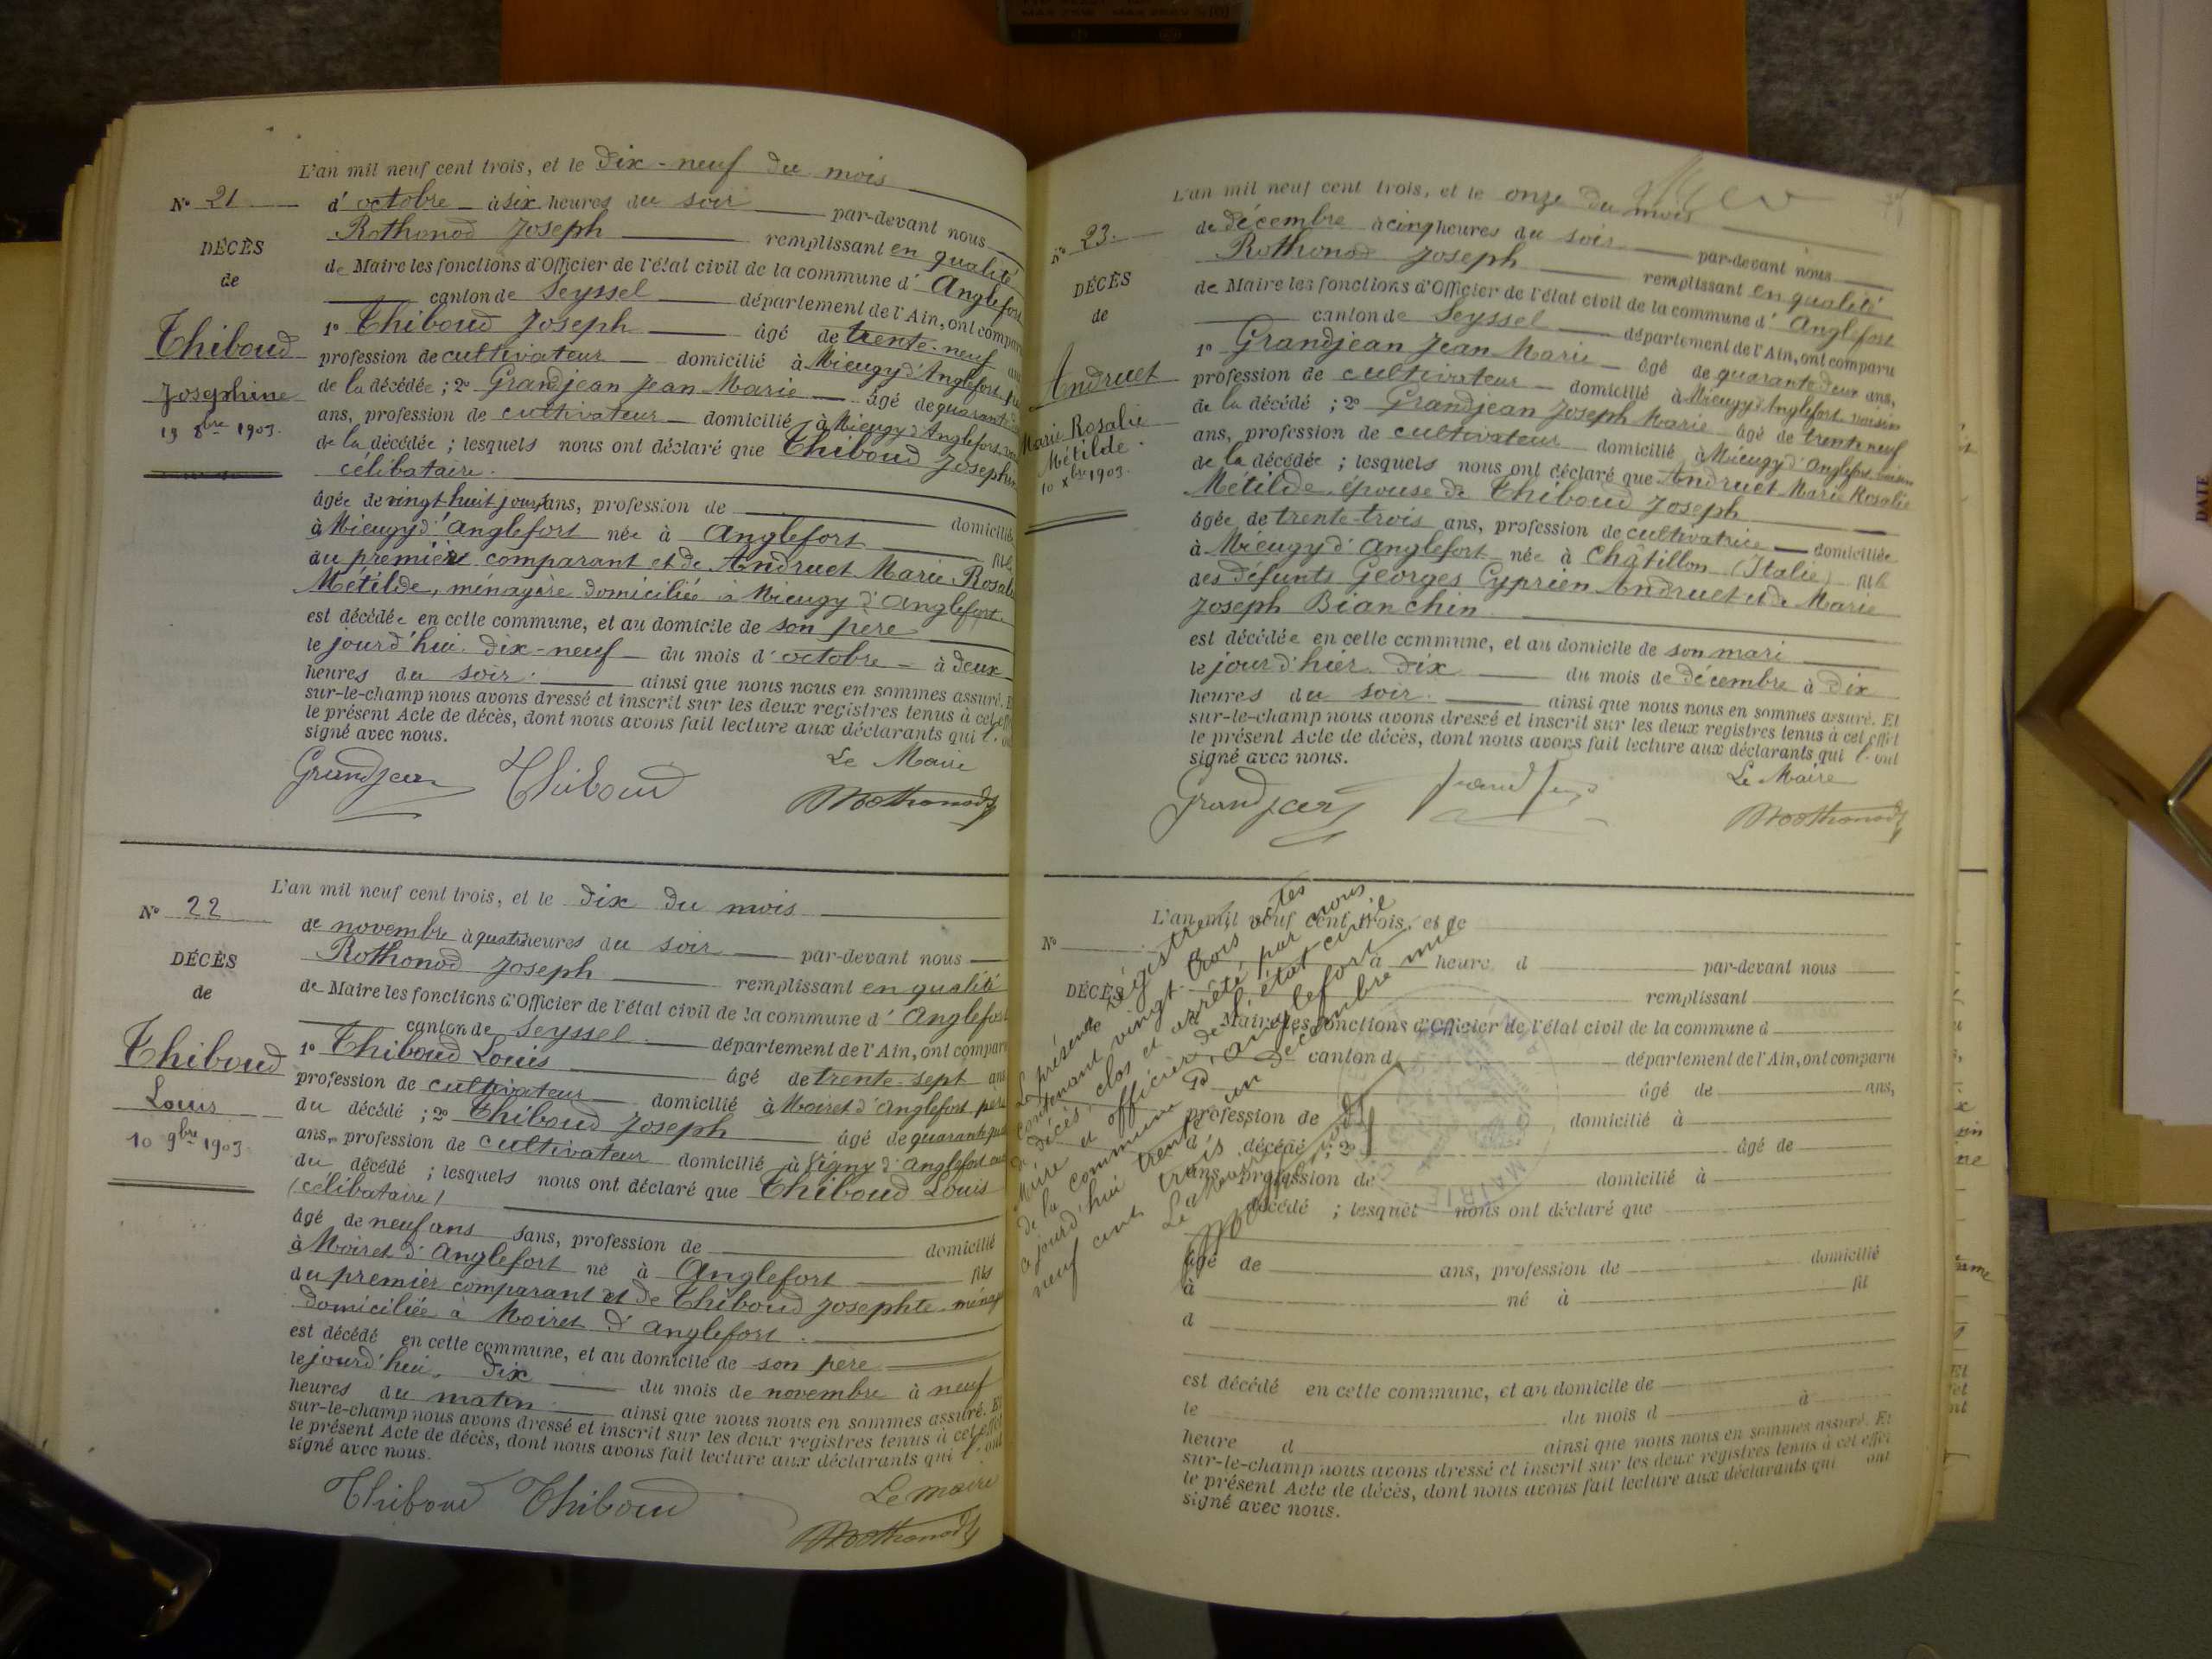 L'an mil neuf cent trois, et le dix-neuf du mois
N° 21
d'octobre à six heures du soir par-devant nous
Rothonod Joseph remplissant en qualité
DÉCÈS
de Maire les fonctions d'Officier de l'état civil de la commune d'Anglefort
de
canton de Seyssel département de l'Ain, ont comparu
1° Thiboud Joseph âgé de trente-neuf ans
Thiboud
profession de cultivateur domicilié à Mieugy d'Anglefort,
Josephine
de la décédée ; 2° Grandjean Jean Marie âgé de
19 8bre 1903.
ans, profession de cultivateur domicilié à Mieugy d'Anglefort,
de la décédée ; lesquels nous ont déclaré que Thiboud Josephine
célibataire.
âgée de vingt huit jours, ans, profession de domiciliée
à Mieugy d'Anglefort née à Anglefort fille
du premier comparant et de Andruet Marie Rosalie
Métilde, ménagère domiciliée à Mieugy d'Anglefort.
est décédée en cette commune, et au domicile de son père
le jourd'hui dix-neuf du mois d'octobre à deux
heures du soir. ainsi que nous nous en sommes assuré. Et
sur-le-champ nous avons dressé et inscrit sur les deux registres tenus à cet effet
le présent Acte de décès, dont nous avons fait lecture aux déclarants qui l'ont
signé avec nous.
Le Maire
Grandjean Thiboud Rothonod
L'an mil neuf cent trois, et le dix du mois
N° 22
de novembre à quatre heures du soir par-devant nous
Rothonod Joseph remplissant en qualité
DÉCÈS
de Maire les fonctions d'Officier de l'état civil de la commune d'Anglefort
de
canton de Seyssel département de l'Ain, ont comparu
1° Thiboud Louis âgé de trente-sept ans
Thiboud
profession de cultivateur domicilié à Moiret d'Anglefort père
Louis
du décédé ; 2° Thiboud Joseph âgé de quarante
10 9bre 1903
ans, profession de cultivateur domicilié à Vigny d'Anglefort
du décédé ; lesquels nous ont déclaré que Thiboud Louis
(célibataire)
âgé de neuf ans sans, profession de domicilié
à Moiret d'Anglefort né à Anglefort fils
du premier comparant et de Thiboud Josephte
domiciliée à Moiret d'Anglefort.
est décédé en cette commune, et au domicile de son père
le jourd'hui, dix du mois de novembre à neuf
heures du matin. ainsi que nous nous en sommes assuré. Et
sur-le-champ nous avons dressé et inscrit sur les deux registres tenus à cet effet
le présent Acte de décès, dont nous avons fait lecture aux déclarants qui l'ont
signé avec nous.
Le maire
Thiboud Thiboud Rothonod
L'an mil neuf cent trois, et le onze du mois
N° 23.
de décembre à cinq heures du soir par-devant nous
Rothonod Joseph remplissant en qualité
DÉCÈS
de Maire les fonctions d'Officier de l'état civil de la commune d'Anglefort
de
canton de Seyssel département de l'Ain, ont comparu
1° Grandjean Jean Marie âgé de quarante deux ans,
Andruet
profession de cultivateur domicilié à Mieugy d'Anglefort voisin
de la décédé ; 2° Grandjean Joseph Marie âgé de trente neuf
Marie Rosalie
ans, profession de cultivateur domicilié à Mieugy d'Anglefort voisin
Métilde.
de la décédée ; lesquels nous ont déclaré que Andruet Marie Rosalie
10 xbre 1903.
Métilde, épouse de Thiboud Joseph
âgée de trente-trois ans, profession de cultivatrice domiciliée
à Mieugy d'Anglefort née à Châtillon (Italie) fille
des défunts Georges Cyprien Andruet et de Marie
Joseph Bianchin
est décédée en cette commune, et au domicile de son mari
le jourd'hier dix du mois de décembre à dix
heures du soir. ainsi que nous nous en sommes assuré. Et
sur-le-champ nous avons dressé et inscrit sur les deux registres tenus à cet effet
le présent Acte de décès, dont nous avons fait lecture aux déclarants qui l'ont
signé avec nous.
Le Maire
Grandjean Rothonod
Le présente régistre
contenant vingt-trois actes
de décès, clos et arrêté, par nous
Maire et officier de l'état civil
de la commune d'Anglefort
ce jourd'hui trente un décembre mil
neuf cent trois
Le Maire
Rothonod
L'an mil neuf cent trois, et le
N°
à heure d par-devant nous
DÉCÈS
remplissant
Maire les fonctions d'Officier de l'état civil de la commune d
canton d département de l'Ain, ont comparu
1° âgé de ans,
profession de domicilié à
d décédé ; 2° âgé de
ans, profession de domicilié à
décédé ; lesquel nous ont déclaré que
âgé de ans, profession de domicilié
à né à fil
d
est décédé en cette commune, et au domicile de
le du mois d à
heure d ainsi que nous nous en sommes assuré. Et
sur-le-champ nous avons dressé et inscrit sur les deux registres tenus à cet effet
le présent Acte de décès, dont nous avons fait lecture aux déclarants qui ont
signé avec nous.
MAIRIE
DATE